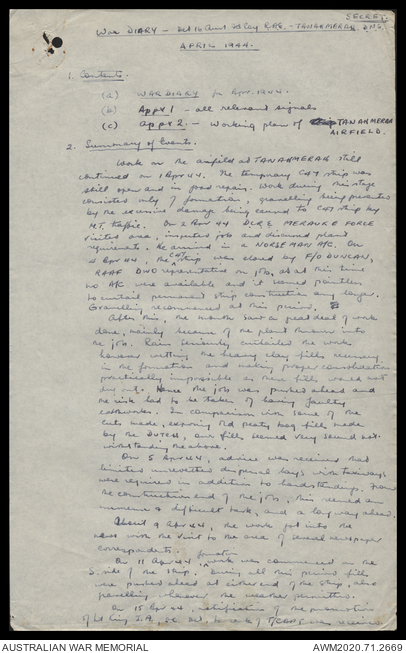 SECRET.
WAR DIARY - Det 16 Aust Fd Coy R.A.E. - TANAHMERAH. D.N.G.
APRIL 1944.
1. Contents.
(a) WAR DIARY for Apr. 1944.
(b) Appx 1 - all relevant signals
(c) Appx 2. - working plan of TANAHMERAH
AIRFIELD.
2. Summary of Events.
Work on the airfield at TANAHMERAH still
continued on 1 Apr 44. The temporary C47 strip was
still open and in good repair. Work during this stage
consisted only of formation, gravelling being prevented
by the excessive damage being caused to C47 strip by
M.T. traffic. On 2 Apr 44 DCRE MERAUKE FORCE
visited area, inspected job and discussed plant
requirements, he arrived in a NORSEMAN A/C. On
4 Apr 44, the C47 strip was closed by F/O DUNCAN,
RAAF DWO representative on job, as at this time
no A/C were available and it seemed pointless
to curtail permanent strip construction any longer.
Gravelling recommenced at this period.
After this, the month saw a great deal of work
done, mainly because of the plant thrown into
the job. Rain seriously curtailed the work
however wetting the heavy clay fills
in the formation and making proper consolidation
practically impossible as these fills would not
dry out. Hence the job was pushed ahead and
the risk had to be taken of having faulty
earthworks. In comparison with some of the
cuts made, exposing old peaty bog fills made
by the DUTCH, our fills seemed very sound not-
withstanding the above.
On 5 Apr 44, advice was received that
limited unrevetted dispersal bays with taxiways
were required in addition to hardstandings. From
the construction end of the job, this seemed an
immense & difficult task, and a long way ahead.
About 9 Apr 44, the work got into the
news with the visit to the area of several newspaper
correspondents.
On 11 Apr 44 formation work was commenced on the
S. side of the strip. During all this period fills
were pushed ahead at either end of the strip, also
gravelling whenever the weather permitted.
On 15 Apr 44, notification of the promotion
of Lt King J.A., OC Det, to rank of received
AUSTRALIAN WAR MEMORIAL
AWM2020.71.2669